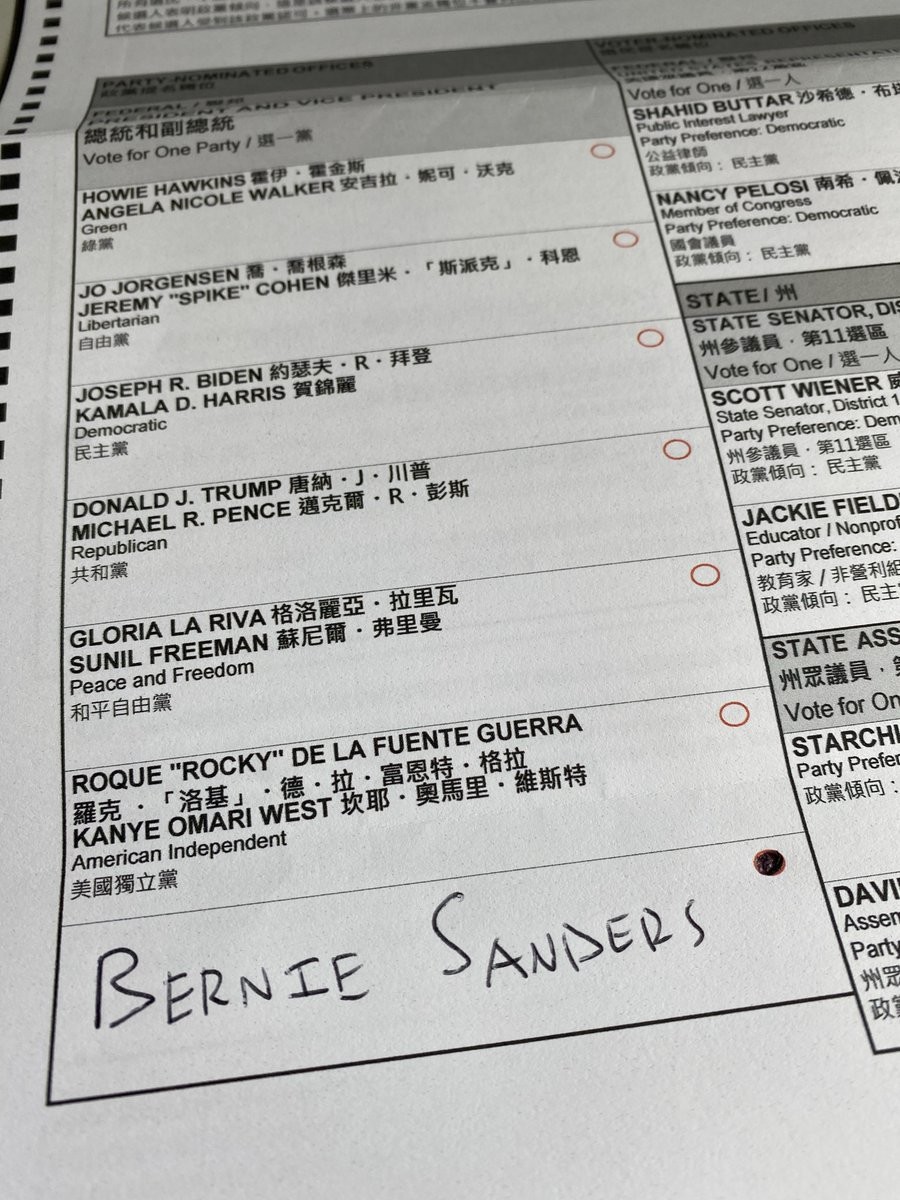 PARTY-NOMINATED OFFICES
政黨提名職位
FEDERAL / 聯邦
PRESIDENT AND VICE PRESIDENT
總統和副總統
Vote for One Party / 選一黨
HOWIE HAWKINS 霍伊・霍金斯
ANGELA NICOLE WALKER 安吉拉・妮可・沃克
Green
綠黨
JO JORGENSEN 喬・喬根森
JEREMY "SPIKE" COHEN 傑里米・「斯派克」・科恩
Libertarian
自由黨
JOSEPH R. BIDEN 約瑟夫・R・拜登
KAMALA D. HARRIS 賀錦麗
Democratic
民主黨
DONALD J. TRUMP 唐納・J・川普
MICHAEL R. PENCE 邁克爾・R・彭斯
Republican
共和黨
GLORIA LA RIVA 格洛麗亞・拉里瓦
SUNIL FREEMAN 蘇尼爾・弗里曼
Peace and Freedom
和平自由黨
ROQUE "ROCKY" DE LA FUENTE GUERRA
羅克・「洛基」・德・拉・富恩特・格拉
KANYE OMARI WEST 坎耶・奧馬里・維斯特
American Independent
美國獨立黨
BERNIE SANDERS
VOTER-NOMINATED OFFICES
Vote for One / 選一人
SHAHID BUTTAR 沙希德・布
Public Interest Lawyer
Party Preference: Democratic
公益律師
政黨傾向： 民主黨
NANCY PELOSI 南希・佩
Member of Congress
Party Preference: Democratic
國會議員
政黨傾向： 民主黨
STATE / 州
STATE SENATOR, DIS
州參議員，第11選區
Vote for One / 選一人
SCOTT WIENER
State Senator, District 1
Party Preference: Dem
州參議員，第11選區
政黨傾向： 民主黨
JACKIE FIELD
Educator / Nonprof
Party Preference:
教育家 / 非營利組
政黨傾向： 民主
STATE ASS
州眾議員，
Vote for On
STARCH
Party Prefer
政黨傾向：
DAVI
Assem
Party
州眾
政黨